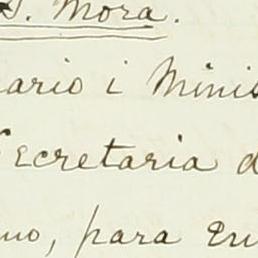 S. Mora.
ario i Minis
Secretaria d
no, para En